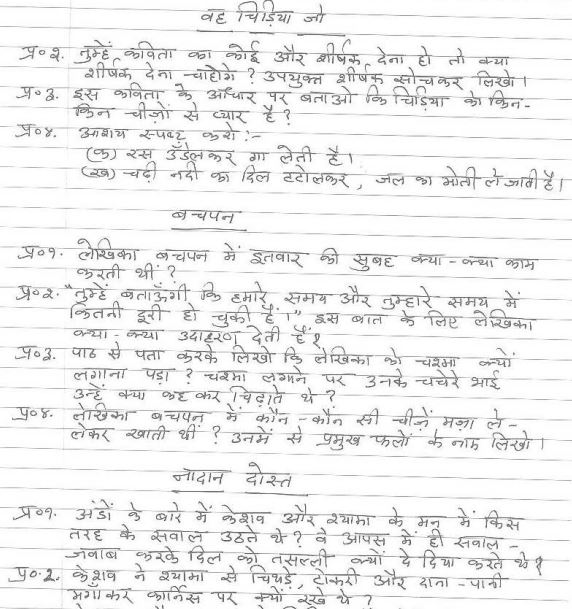 वह चिड़िया जो
प्र०२. तुम्हें कविता का कोई और शीर्षक देना हो तो क्या
शीर्षक देना चाहोगे? उपयुक्त शीर्षक सोचकर लिखो।
प्र०३. इस कविता के आधार पर बताओ कि चिड़िया को किन-
किन चीज़ों से प्यार है?
प्र०४. आशय स्पष्ट करो:-
(क) रस उँडेलकर गा लेती है।
(ख) चढ़ी नदी का दिल टटोलकर, जल का मोती ले जाती है।
बचपन
प्र०१. लेखिका बचपन में इतवार की सुबह क्या-क्या काम
करती थीं?
प्र०२. "तुम्हें बताऊँगी कि हमारे समय और तुम्हारे समय में
कितनी दूरी हो चुकी है।" इस बात के लिए लेखिका
क्या-क्या उदाहरण देती हैं?
प्र०३. पाठ से पता करके लिखो कि लेखिका को चश्मा क्यों
लगाना पड़ा? चश्मा लगाने पर उनके चचेरे भाई
उन्हें क्या कह कर चिढ़ाते थे?
प्र०४. लेखिका बचपन में कौन-कौन सी चीज़ें मज़ा ले-
लेकर खाती थीं? उनमें से प्रमुख फलों के नाम लिखो।
नादान दोस्त
प्र०१. अंडों के बारे में केशव और श्यामा के मन में किस
तरह के सवाल उठते थे? वे आपस में ही सवाल-
जवाब करके दिल को तसल्ली क्यों दे दिया करते थे?
प्र०२. केशव ने श्यामा से चिथड़े, टोकरी और दाना-पानी
मँगाकर कार्निस पर क्यों रखे थे?